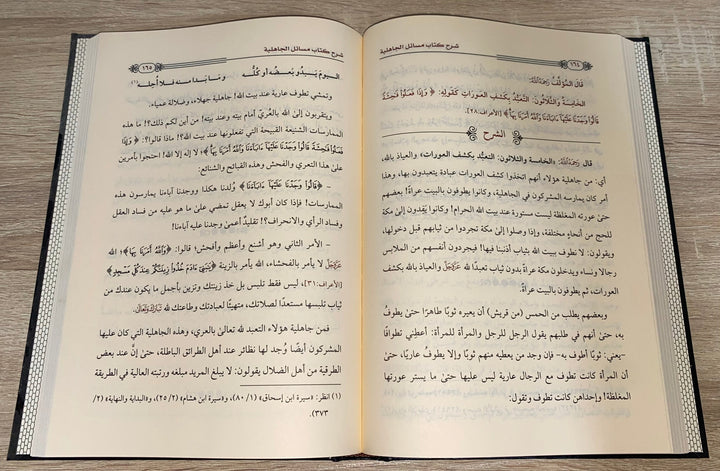 شرح كتاب مسائل الجاهلية
١٦٤
قال المُؤَلِّفُ رَحِمَهُ اللَّهُ:
الخَامِسَةُ وَالثَّلَاثُونَ: التَّعَبُّدُ بِكَشْفِ العَوْرَاتِ كَقَوْلِهِ: ﴿ وَإِذَا فَعَلُوا فَٰحِشَةً
قَالُوا وَجَدْنَا عَلَيْهَآ ءَابَآءَنَا وَٱللَّهُ أَمَرَنَا بِهَا ﴾ [الأعراف:٢٨].
الشرح
قال رَحِمَهُ اللَّهُ: (الخامسة والثلاثون: التعبُّد بكشف العورات) والعياذ بالله،
أي: من جاهلية هؤلاء أنهم اتخذوا كشف العورات عبادة يتعبدون بها، وهذا
أمر كان يمارسه المشركون في الجاهلية، وكانوا يطوفون بالبيت عراةً! بعضهم
حتىٰ عورته المغلظة ليست مستورة عند بيت الله الحرام! وكانوا يَفِدون إلىٰ مكة
للحج من أنحاءٍ مختلفة، وإذا وصلوا إلىٰ مكة تجردوا من ثيابهم قبل دخولها،
ويقولون: لا نطوف ببيت الله بثياب أذنبنا فيها! فيجردون أنفسهم من الملابس
رجالًا ونساء ويدخلون مكة عراةً بدون ثياب تعبدًا لله عَزَّوَجَلَّ والعياذ بالله بكشف
العورات، ثم يطوفون بالبيت عراةً.
وبعضهم يطلب من الحمس (من قريش) أن يعيره ثوبًا طاهرًا حتىٰ يطوفَ
به، حتىٰ أنهم في طلبهم يقول الرجل للرجل والمرأة للمرأة: أعطني تطوافًا
-يعني: ثوبًا أطوف به- فإن وجد من يعطيه منهم ثوبًا وإلا يطوفُ عاريًا، حتىٰ
أن المرأة كانت تطوف مع الرجال عارية ليس عليها حتىٰ ما يستر عورتها
المغلظة! وإحداهن كانت تطوف وتقول:
شرح كتاب مسائل الجاهلية
١٦٥
اليومَ يَبدُو بَعضُه أو كُلُّه وَمَا بَدا منه فلا أُحِلُّه (١)
وتمشي تطوف عارية عند بيت الله! جاهلية جهلاء، وضلالة عمياء.
ويتقربون إلىٰ الله بالعُريّ أمام بيته وعند بيته! من أين لكم ذلك؟! ما هذه
الممارسات الشنيعة القبيحة التي تفعلونها عند بيت الله؟! ماذا قالوا؟: ﴿ وَإِذَا
فَعَلُوا فَٰحِشَةً قَالُوا وَجَدْنَا عَلَيْهَآ ءَابَآءَنَا وَٱللَّهُ أَمَرَنَا بِهَا ﴾؛ لا إله إلا الله! احتجوا بأمرين
علىٰ هذا التعري والفحش وهذه القبائح والشنائع:
- ﴿ قَالُوا وَجَدْنَا عَلَيْهَآ ءَابَآءَنَا ﴾ وُلدنا هكذا ووجدنا آباءنا يمارسون هذه
الممارسات! فإذا كان أبوك لا يعقل تمضي علىٰ ما هو عليه من فساد العقل
وفساد الرأي والانحراف؟! تقليدًا أعمىٰ وجدنا عليه آباءنا!
- الأمر الثاني وهو أشنع وأعظم وأفحش؛ قالوا: ﴿ وَٱللَّهُ أَمَرَنَا بِهَا ﴾؛ الله
عَزَّوَجَلَّ لا يأمر بالفحشاء، الله يأمر بالزينة ﴿ يَٰبَنِىٓ ءَادَمَ خُذُوا زِينَتَكُمْ عِندَ كُلِّ مَسْجِدٍ ﴾
[الأعراف:٣١]، ليس فقط تلبس بل خذ زينتك وتزين بأجمل ما يكون عندك من
ثياب تلبسها مستعدًا لصلاتك، متهيئًا لعبادتك وطاعتك لله تَبَارَكَ وَتَعَالَىٰ.
فمن جاهلية هؤلاء التعبد لله تعالىٰ بالعري، وهذه الجاهلية التي كان عليها
المشركون أيضًا وُجد لها نظائر عند أهل الطرائق الباطلة، حتىٰ إنَّ عند بعض
الطرقية من أهل الضلال يقولون: لا يبلغ المريد مبلغه ورتبته العالية في الطريقة
(١) انظر: «سيرة ابن إسحاق» (١/ ٨٠)، و«سيرة ابن هشام» (٢/ ٢٥)، و«البداية والنهاية» (٢/
٣٧٣).